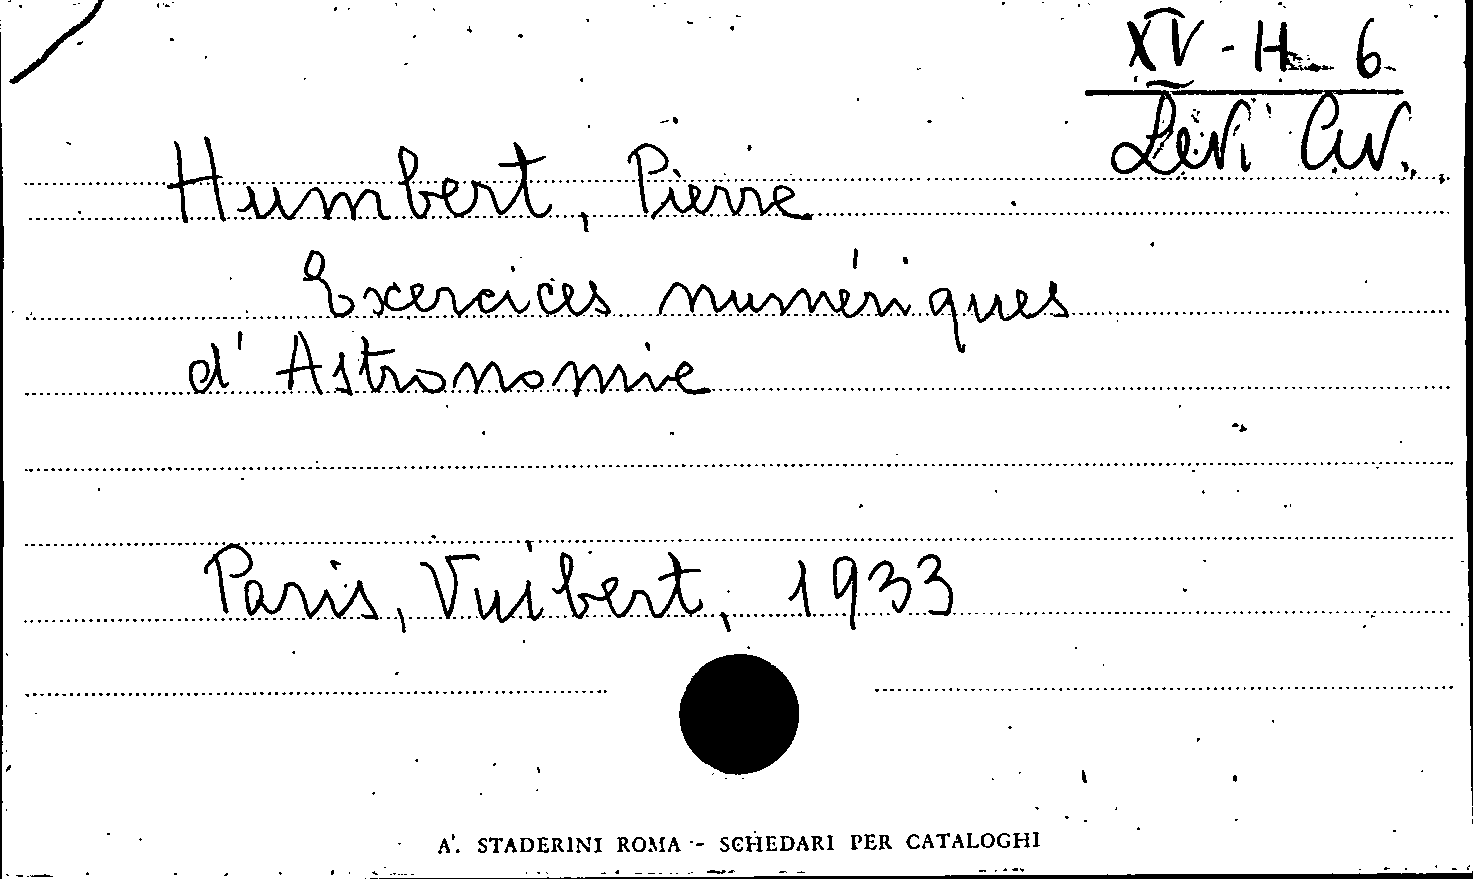 XV - H 6
Levi Civ.
Humbert, Pierre
Exercices numériques
d'Astronomie
Paris, Vuibert, 1933
A. STADERINI ROMA - SCHEDARI PER CATALOGHI